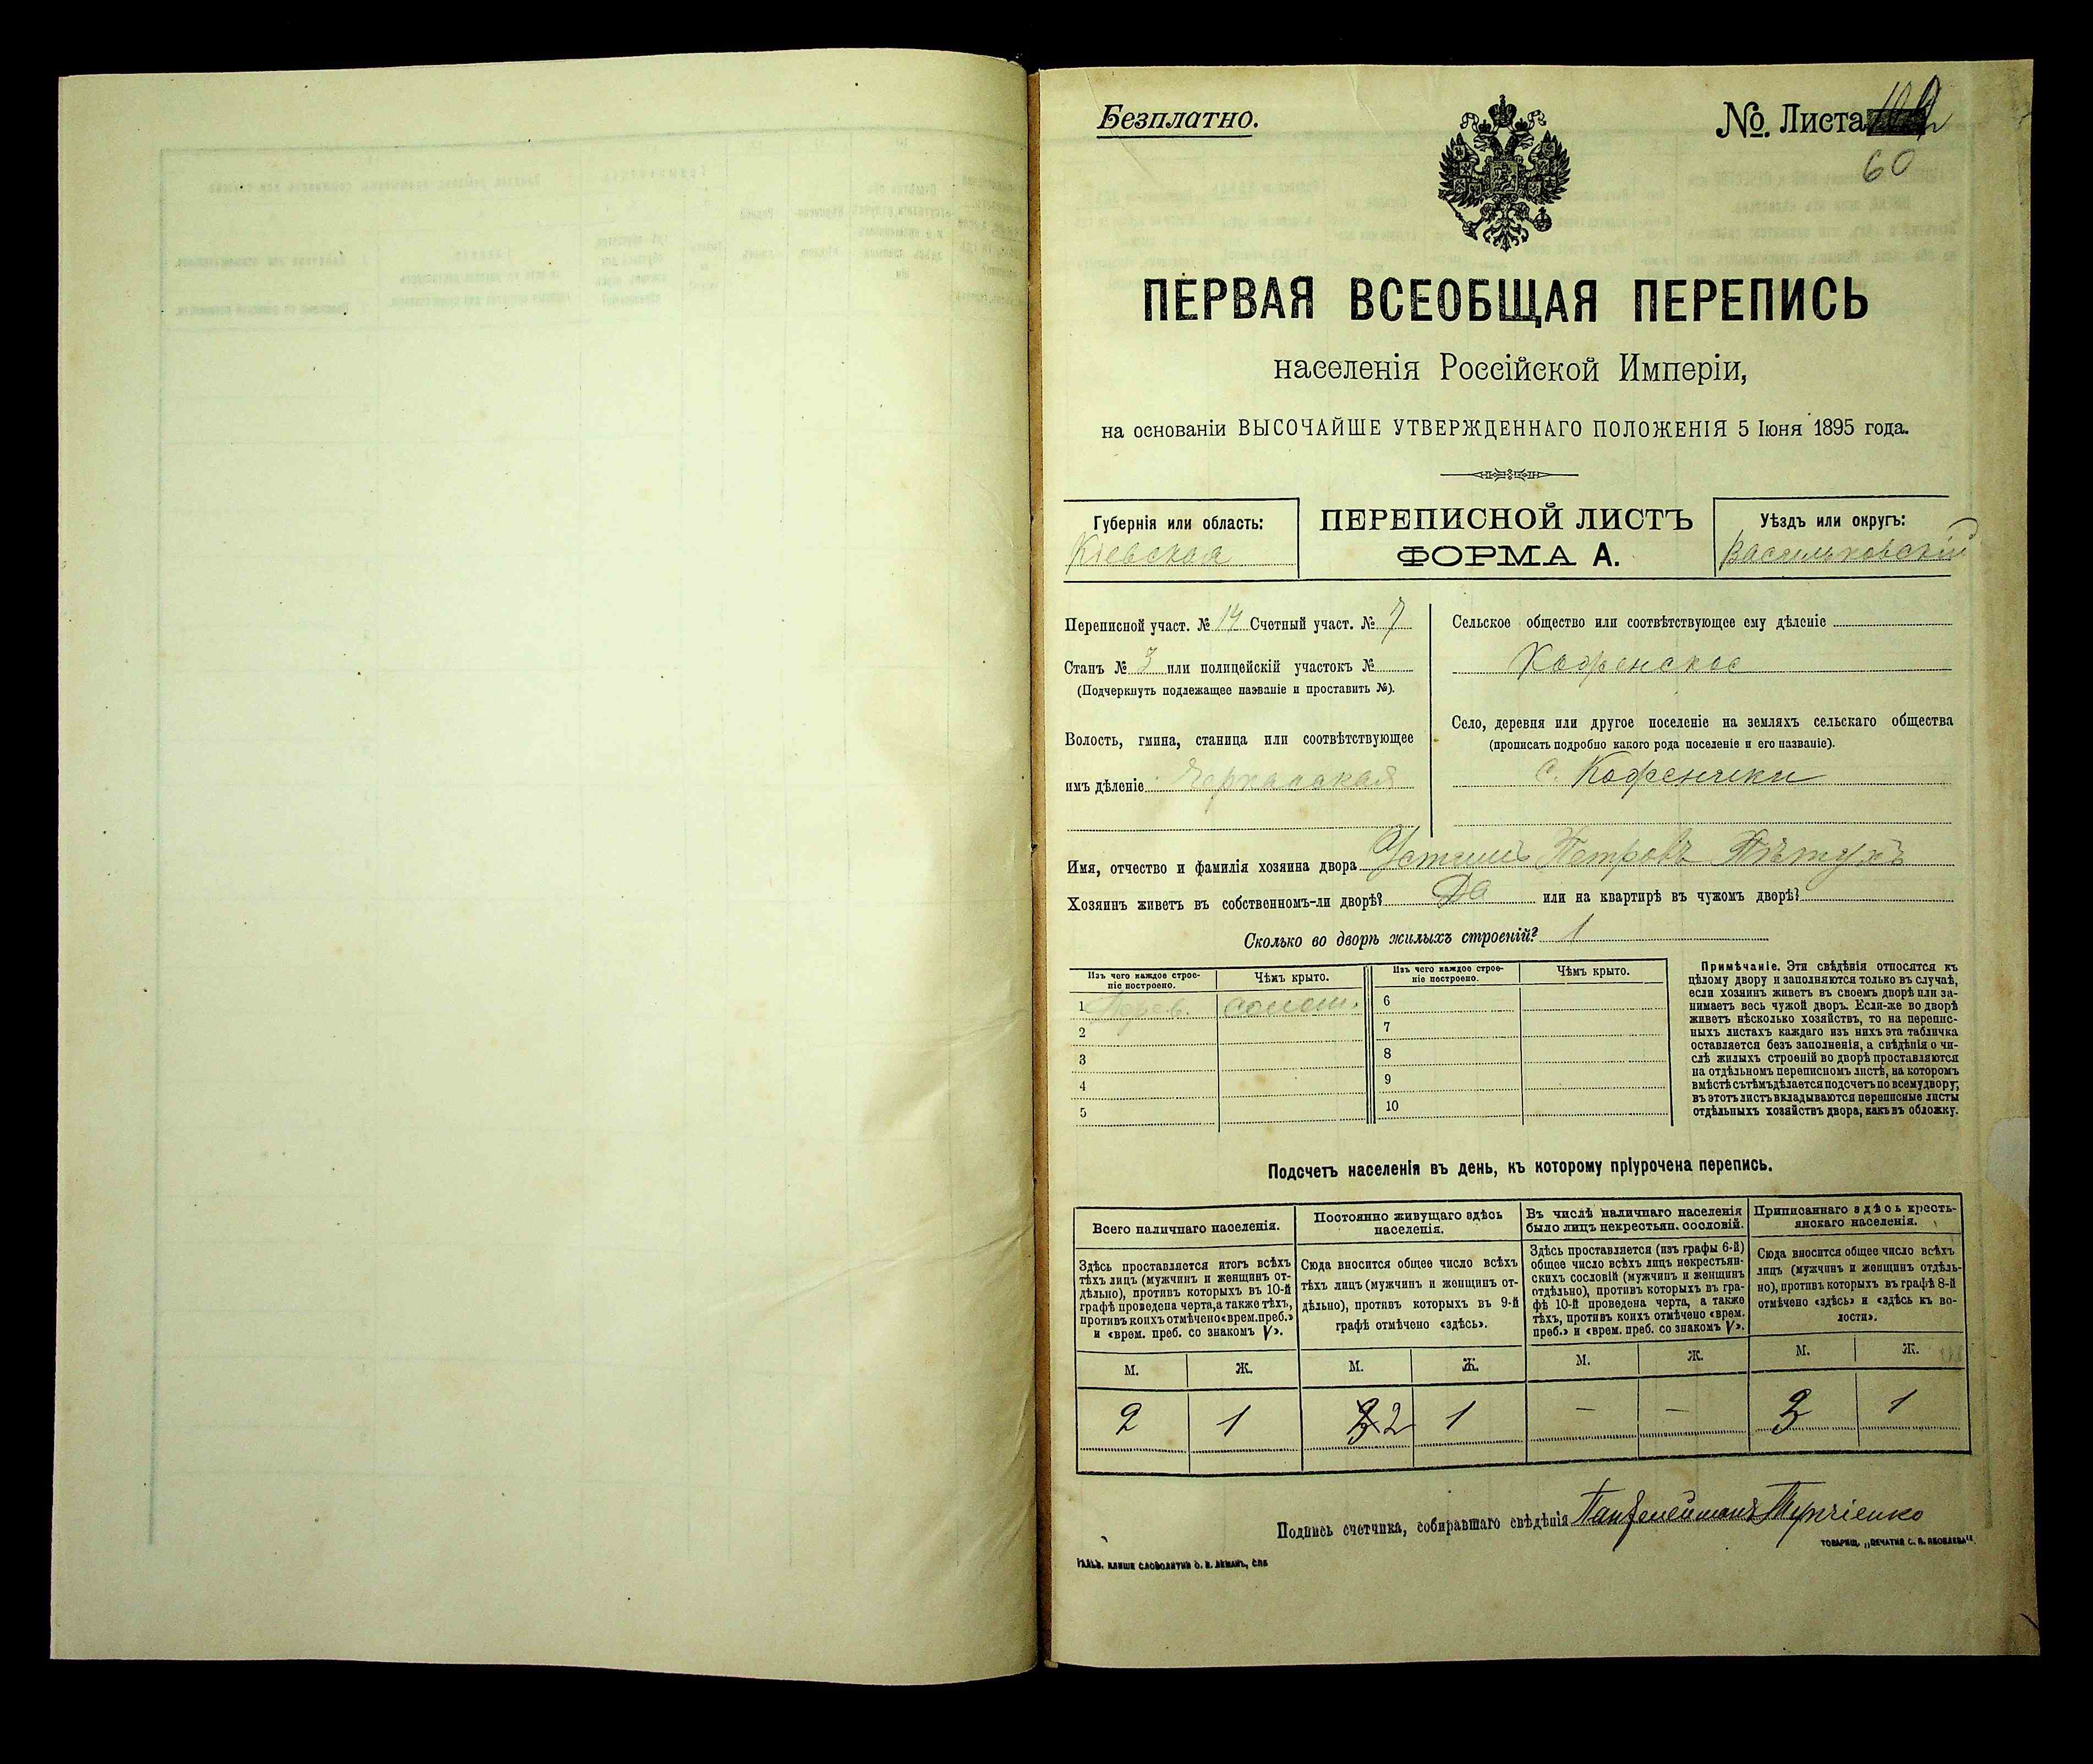 Безплатно.
№. Листа
60
ПЕРВАЯ ВСЕОБЩАЯ ПЕРЕПИСЬ
населенія Россійской Имперіи,
на основаніи ВЫСОЧАЙШЕ УТВЕРЖДЕННАГО ПОЛОЖЕНІЯ 5 Іюня 1895 года.
Губернія или область:
Кіевская
ПЕРЕПИСНОЙ ЛИСТЪ
ФОРМА А.
Уѣздъ или округъ:
Васильковскій
Переписной участ. № 14 Счетный участ. № 7
Станъ № 3 или полицейскій участокъ №
(Подчеркнуть подлежащее названіе и проставить №).
Волость, гмина, станица или соотвѣтствующее
имъ дѣленіе Черкасская
Сельское общество или соотвѣтствующее ему дѣленіе
Село, деревня или другое поселеніе на земляхъ сельскаго общества
(прописать подробно какого рода поселеніе и его названіе).
с.
Имя, отчество и фамилія хозяина двора Устимъ Петровъ Пѣтухъ
Хозяинъ живетъ въ собственномъ-ли дворѣ? Да или на квартирѣ въ чужомъ дворѣ?
Сколько во дворѣ жилыхъ строеній? 1
Изъ чего каждое строеніе построено.
Чѣмъ крыто.
Изъ чего каждое строеніе построено.
Чѣмъ крыто.
1 Дерев. солом. 6
2 7
3 8
4 9
5 10
Примѣчаніе. Эти свѣдѣнія относятся къ
цѣлому двору и заполняются только въ случаѣ,
если хозяинъ живетъ въ своемъ дворѣ или за-
нимаетъ весь чужой дворъ. Если-же во дворѣ
живетъ нѣсколько хозяйствъ, то на перепис-
ныхъ листахъ каждаго изъ нихъ эта табличка
оставляется безъ заполненія, а свѣдѣнія о чи-
слѣ жилыхъ строеній во дворѣ проставляются
на отдѣльномъ переписномъ листѣ, на которомъ
вмѣстѣ съ тѣмъ дѣлается подсчетъ по всему двору;
въ этотъ листъ вкладываются переписные листы
отдѣльныхъ хозяйствъ двора, какъ въ обложку.
Подсчетъ населенія въ день, къ которому пріурочена перепись.
Всего наличнаго населенія.
Здѣсь проставляется итогъ всѣхъ
тѣхъ лицъ (мужчинъ и женщинъ от-
дѣльно), противъ которыхъ въ 10-й
графѣ проведена черта, а также тѣхъ,
противъ коихъ отмѣчено «врем. преб.»
и «врем. преб. со знакомъ V».
Постоянно живущаго здѣсь
населенія.
Сюда вносится общее число всѣхъ
тѣхъ лицъ (мужчинъ и женщинъ от-
дѣльно), противъ которыхъ въ 9-й
графѣ отмѣчено «здѣсь».
Въ числѣ наличнаго населенія
было лицъ некрестьян. сословій.
Здѣсь проставляется (изъ графы 6-й)
общее число всѣхъ лицъ некрестьян-
скихъ сословій (мужчинъ и женщинъ
отдѣльно), противъ которыхъ въ гра-
фѣ 10-й проведена черта, а также
тѣхъ, противъ коихъ отмѣчено «врем.
преб.» и «врем. преб. со знакомъ V».
Приписаннаго здѣсь кресть-
янскаго населенія.
Сюда вносится общее число всѣхъ
лицъ (мужчинъ и женщинъ отдѣль-
но), противъ которыхъ въ графѣ 8-й
отмѣчено «здѣсь» и «здѣсь къ во-
лости».
М. Ж. М. Ж. М. Ж. М. Ж.
2 1 2 1 — — 3 1
Подпись счетчика, собиравшаго свѣдѣнія
ГАЛЬВ. КЛИШЕ СЛОВОЛИТНИ О. И. ЛЕМАНЪ, СПБ
ТОВАРИЩ. „ПЕЧАТНЯ С. П. ЯКОВЛЕВА“.